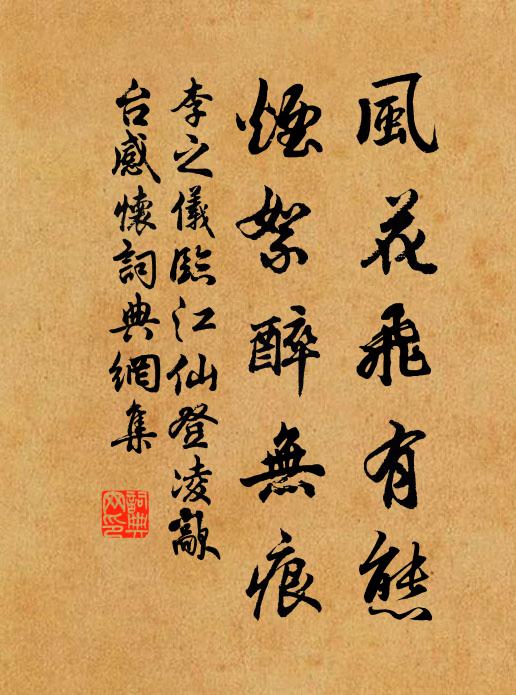 風花飛有態
煙絮醉無痕
李之儀臨江仙登凌歊
台感懷詞典網集
詞典
网印